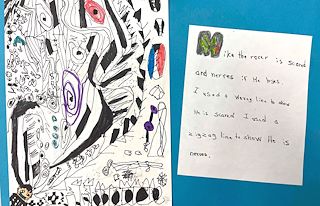 Mike the racer is scared
and nerves if He loses.
I used a wavy line to show
He is scared I used a
zigzag line to show He is
nerves.